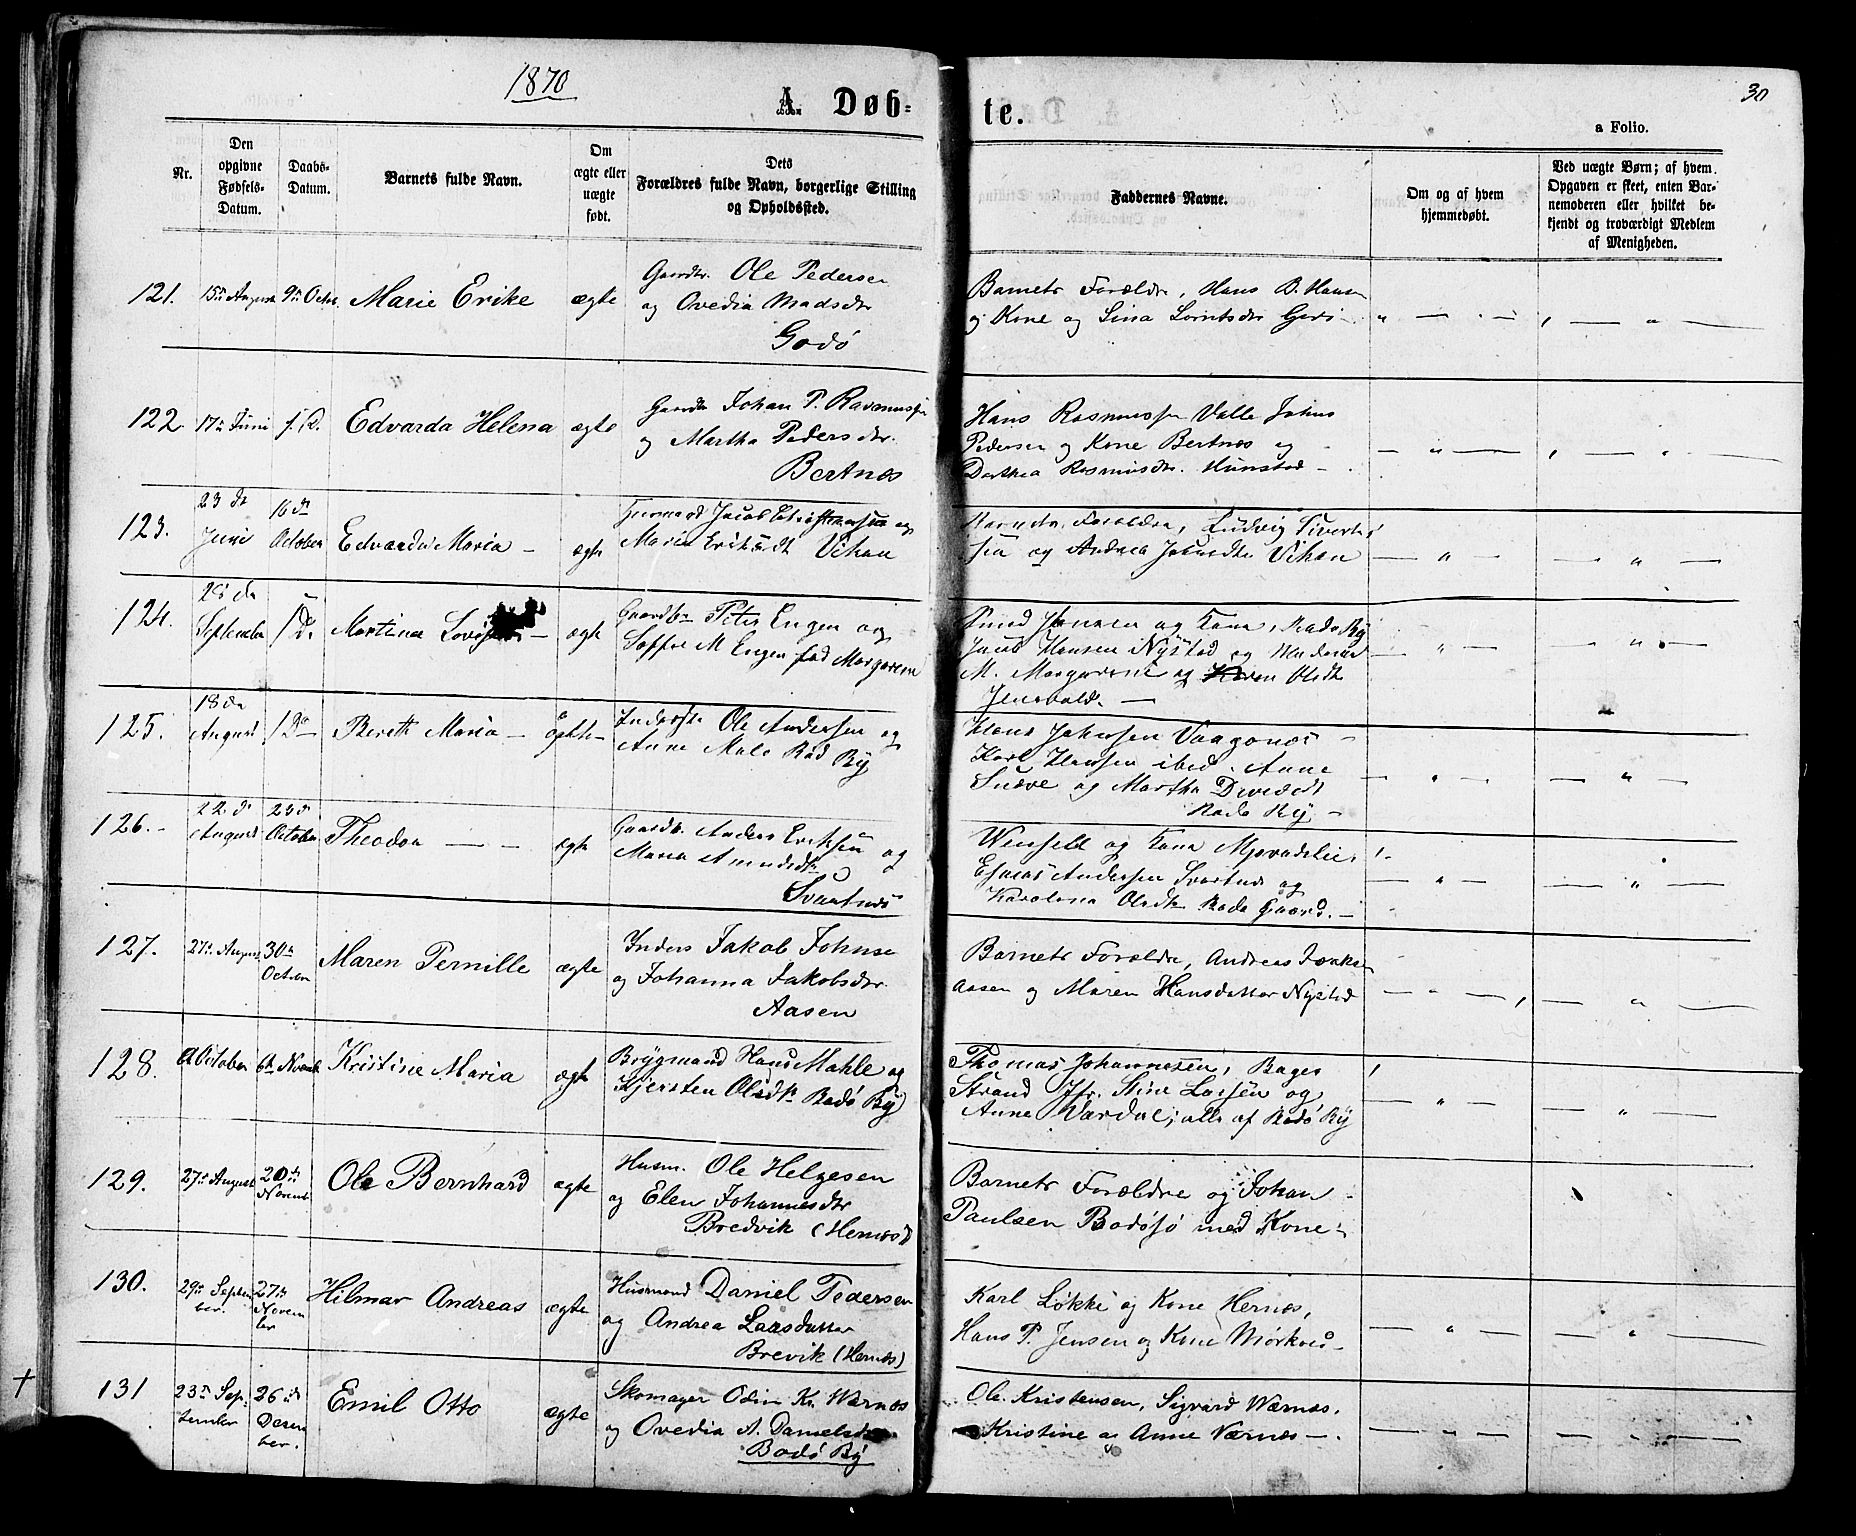 1870
A. Døb-
te.
30
a Folio.
Nr.
Den opgivne Fødsels-Datum.
Daabs-Datum.
Barnets fulde Navn.
Om ægte eller uægte født.
Dets Forældres fulde Navn, borgerlige Stilling og Opholdssted.
Faddernes Navne.
Om og af hvem hjemmedøbt.
Ved uægte Børn; af hvem Opgaven er skeet, enten Barnemoderen eller hvilket bekjendt og troværdigt Medlem af Menigheden.
121. 15de August 9de Octbr. Marie Erike ægte
Gaardbr. Ole Pedersen
og Ovedia Madsdtr
Godø
Barnets Forældre, Hans B. Hansen
og Kone og Sina Lorntsdtr Godø
122. 17de Juni s. D. Edvarda Helena ægte
Gaardbr Johan P. Rasmussen
og Martha Pedersdtr.
Bertnes
Hans Rasmussen Valle Johns
Pedersen og Kone Bertnes og
Dorthea Rasmusdtr. Hunstad
123. 23 de Juni 16 de October Edvarda Maria - ægte
Jacob Christophersen og
Maria Eriksdt Vikan
Barnets Forældre, Ludvig Siverts
sen og Andrea Jakobsdtr Vikan
124. September s. D. Martina ægte
Gaardbr Peter Engen og
M Engen fød Morgaren
Jensen og Kone, Bodø By
Jacob Hansen Nystad og
M. og Karen Olsdt
125. 18 de August Bereth Maria - ægte
Inderst Ole Andersen og
Anne Bodø By
Hans Johansen Vaagønes -
Karl Hansen ibid. Anne
og Martha
Bodø By -
126. 22 de August 23 de October Theodor - ægte
Gaardbr. Anders Eriksen og
Maria
Svartnes
og Kone
Esaias Andersen Svartnes og
Karolina Olsdtr Bodø Gaard. -
127. 27de August 30te October Maren Pernille ægte
Inders Jakob Johns
og Johanna Jakobsdtr.
Aasen
Barnets Forældre, Andreas
Aasen og Maren Hansdatter Nystad
128. October 6te Novemb Kristine Maria ægte
Brygmand Hans Mahle og
Kjersten Olsdtr Bodø By
Thomas Johannesen, Bages
Strand Jfr. Stine Larsen og
Anne Værdal; alle af Bodø By
129. 27de August 20de Novemb Ole Bernhard ægte
Husm. Ole Helgesen
og Elen Johannesdtr
Bredvik (Hernæs)
Barnets Forældre og Johan
Paulsen Bodøsjø med Kone
130. 29de September. 27de November Hilmar Andreas ægte
Husmand Daniel Pedersen
og Andrea Larsdatter
Brevik (Hernæs)
Karl Løkke og Kone Hernæs,
Hans P. Jensen og Kone Mørkved
131 23de September 26de December. Emil Otto ægte
Skomager Odin K. Wærnes
og Ovedia A. Danielsd
Bodø By
Ole Kristensen, Sigvard Wærnæs,
Kristine og Anne Værnæs -